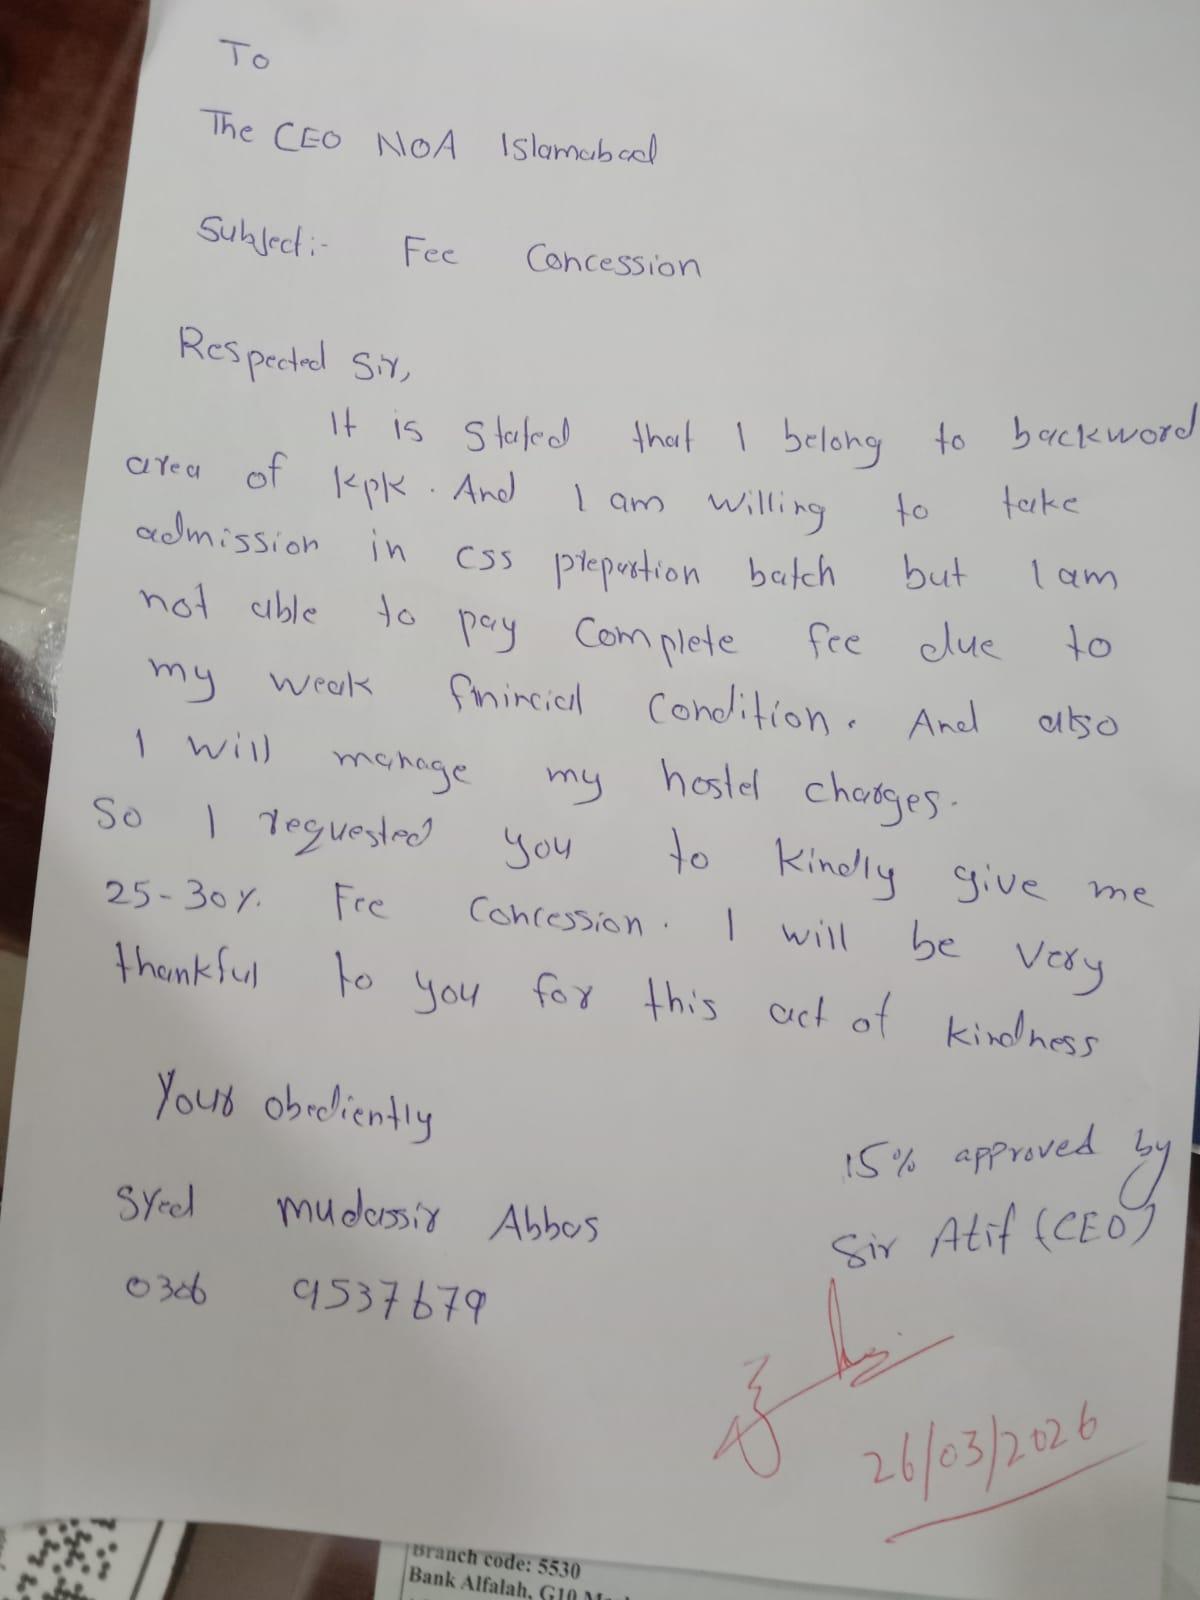 To
The CEO NOA Islamabad
Subject:- Fee Concession
Respected Sir,
It is stated that I belong to backword
area of kpk. And I am willing to take
admission in css prepartion batch but I am
not able to pay complete fee due to
my weak finincial condition. And also
I will manage my hostel charges.
So I requested you to kindly give me
25-30%. Fee Concession. I will be very
thankful to you for this act of kindness
Your obediently
Syed mudassir Abbas
0306 9537679
15% approved by
Sir Atif (CEO)
26/03/2026
Branch code: 5530
Bank Alfalah, G10